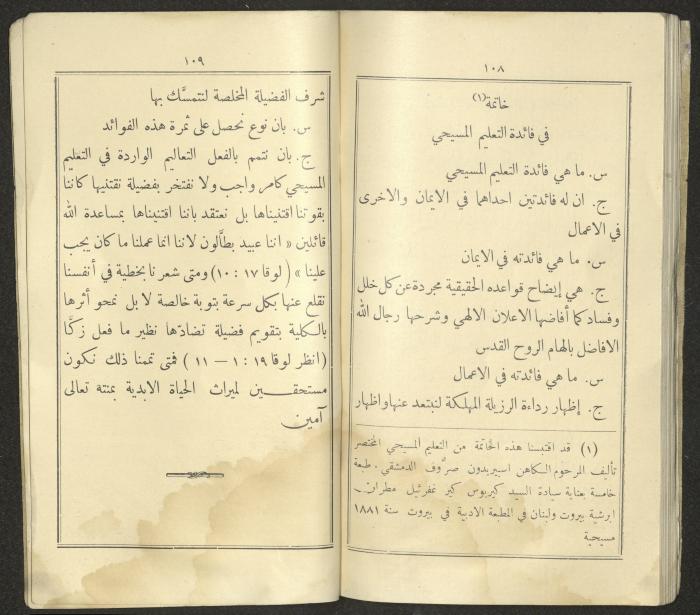 ١٠٨
خاتمة (١)
في فائدة التعليم المسيحي
س. ما هي فائدة التعليم المسيحي
ج. ان له فائدتين احداهما في الايمان والاخرى
في الاعمال
س. ما هي فائدته في الايمان
ج. هي إيضاح قواعده الحقيقية مجردة عن كل خلل
وفساد كما أفاضها الاعلان الالهي وشرحها رجال الله
الافاضل بالهام الروح القدس
س. ما هي فائدته في الاعمال
ج. إظهار رداءة الرزيلة المهلكة لنبتعد عنها واظهار
(١) قد اقتبسنا هذه الخاتمة من التعليم المسيحي المختصر
تأليف المرحوم الكاهن اسبيريدون صرُّوف الدمشقي. طبعة
خامسة بعناية سيادة السيد كيريوس كير غفرئيل مطران
ابرشية بيروت ولبنان في المطبعة الادبية في بيروت سنة ١٨٨١
مسيحية
١٠٩
شرف الفضيلة المخلصة لنتمسَّك بها
س. بان نوع نحصل على ثمرة هذه الفوائد
ج. بان نتمم بالفعل التعاليم الواردة في التعليم
المسيحي كامر واجب ولا نفتخر بفضيلة نقتنيها كاننا
بقوتنا اقتنيناها بل نعتقد باننا اقتنيناها بمساعدة الله
قائلين « اننا عبيد بطَّالون لاننا انما عملنا ما كان يجب
علينا » (لوقا ١٧ : ١٠) ومتى شعرنا بخطية في أنفسنا
نقلع عنها بكل سرعة بتوبة خالصة لا بل نمحو أثرها
بالكلية بتقويم فضيلة تضادّها نظير ما فعل زكَّا
(انظر لوقا ١٩ : ١ — ١١) فتى تممنا ذلك نكون
مستحقين لميراث الحياة الابدية بمنته تعالى
آمين